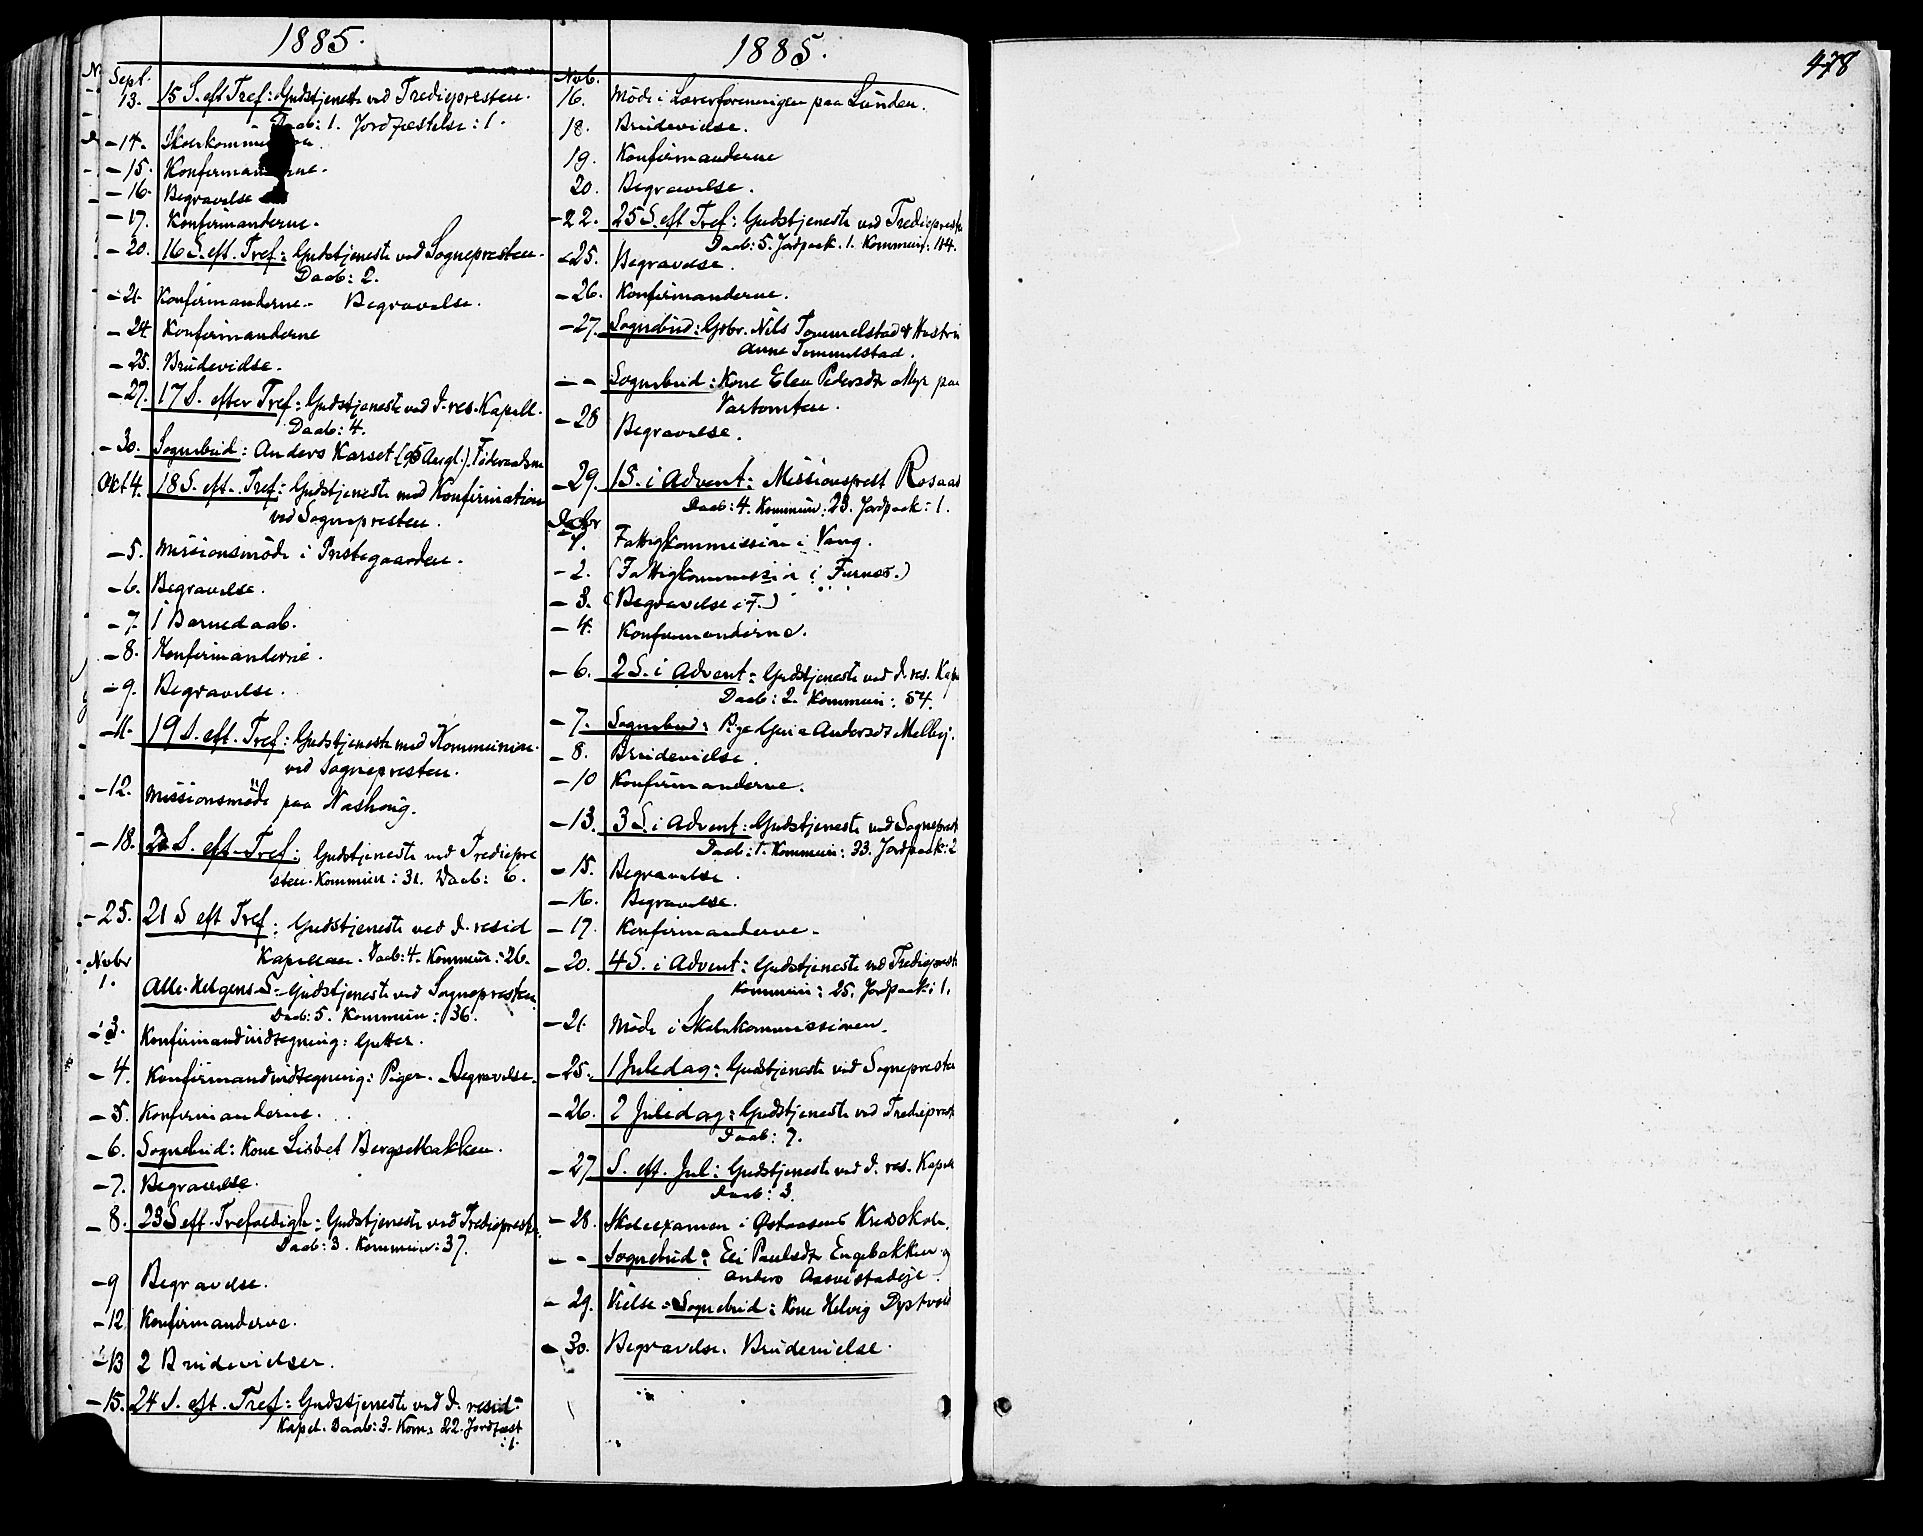 1885.
Sept.
13. 15 S. eft Tref: Gudstjeneste ved Tredieprestem.
Daab: 1. Jordfæstelse: 1.
-14.
-15. Konfirmanderne.
-16. Begravelse
-17. Konfirmanderne.
-20. 16 S. eft. Tref: Gudstjeneste ved Sognepresten.
Daab: 2.
-21. Konfirmanderne. Begravelse.
-24. Konfirmanderne
-25. Brudevidse.
-27. 17 S. efter Tref: Gudstjeneste ved d. res. Kapell.
Daab: 4.
-30. Sognebud: Anders Karset (95 Aar gl.), Føderaadsm
Okt 4. 18 S. eft. Tref: Gudstjeneste med Konfirmation
ved Sognepresten.
-5. Missionsmöde i Prestegaarden.
-6. Begravelse.
-7. 1 Barnedaab.
-8. Konfirmanderne.
-9. Begravelse.
-11. 19 S. eft. Tref: Gudstjeneste med Kommunion
ved Sognepresten.
-12. Missionsmöde paa Nashoug.
-18. 20 S. eft. Tref: Gudstjeneste ved Trediepre
sten. Kommun: 31. Daab: 6.
-25. 21 S eft Tref: Gudstjeneste ved d. resid
Kapellan. Daab: 4. Kommun: 26.
Nvbr
1. Alle-Helgens-S: Gudstjeneste ved Sognepresten
Daab: 5. Kommun: 36.
-3. Konfirmandindtegning: Gutter.
-4. Konfirmandindtegning: Piger. Begravelse.
-5. Konfirmanderne.
-6. Sognebud: Kone Lisbet Bergsetbakken.
-7. Begravelse.
-8. 23 S eft. Trefoldigh: Gudstjeneste ved Trediepreste.
Daab: 3. Kommun: 37.
-9 Begravelse.
-12 Konfirmanderne.
-13 2 Brudevidser.
-15. 24 S. eft. Tref: Gudstjeneste ved d. resid.
Kapel. Daab: 3. Kom: 22. Jordfæst
: 1.
1885.
Nvb.
16. Möde i Lærerforeningen paa Lunden.
18. Brudevidse.
19. Konfirmanderne
20. Begravelse.
-22. 25 S. eft Tref: Gudstjeneste ved Trediepreste
Daab: 5. Jordpaak. 1. Kommun: 114.
-25. Begravelse.
-26. Konfirmanderne.
-27. Sognebud: Gbr. Nils Tommelstad & Hustru
Anne Tommelstad.
- - Sognebud: Kone Elen Pedersdtr Myr paa
-28 Begravelse.
-29. 1 S. i Advent: Missionsprest Rosaas
Daab: 4. Kommun: 23. Jordpaak: 1.
Decbr
1. Fattigkommission i Vang.
-2. (Fattigkommission i Furnes.)
-3. (Begravelse i F.)
-4. Konfirmanderne.
-6. 2 S. i Advent: Gudstjeneste ved d. res. Kap
Daab: 2. Kommun: 54.
-7. Sognebud: Pige Andersdtr Melby.
-8. Brudevielse.
-10 Konfirmanderne.
-13. 3 S. i Advent: Gudstjeneste ved Sogneprest
Daab: 1. Kommun: 33. Jordpaak: 2
-15. Begravelse.
-16. Begravelse.
-17. Konfirmanderne.
-20. 4 S. i Advent: Gudstjeneste ved Trediepreste
Kommun: 25. Jordpaak: 1.
-21. Möde i Skolekommissionen.
-25. 1 Juledag: Gudstjeneste ved Sognepresten
-26. 2 Juledag: Gudstjeneste ved Trediepreste
Daab: 7.
-27 S. eft. Jul: Gudstjeneste ved d. res. Kapel
Daab: 3.
-28. Skoleexamen i Østaasens Kredsskole.
- - Sognebud: Eli Paulsdtr Engebakken og
Anders
-29. Vielse - Sognebud: Kone Helvig Dystvold
-30. Begravelse. Brudevielse.
478